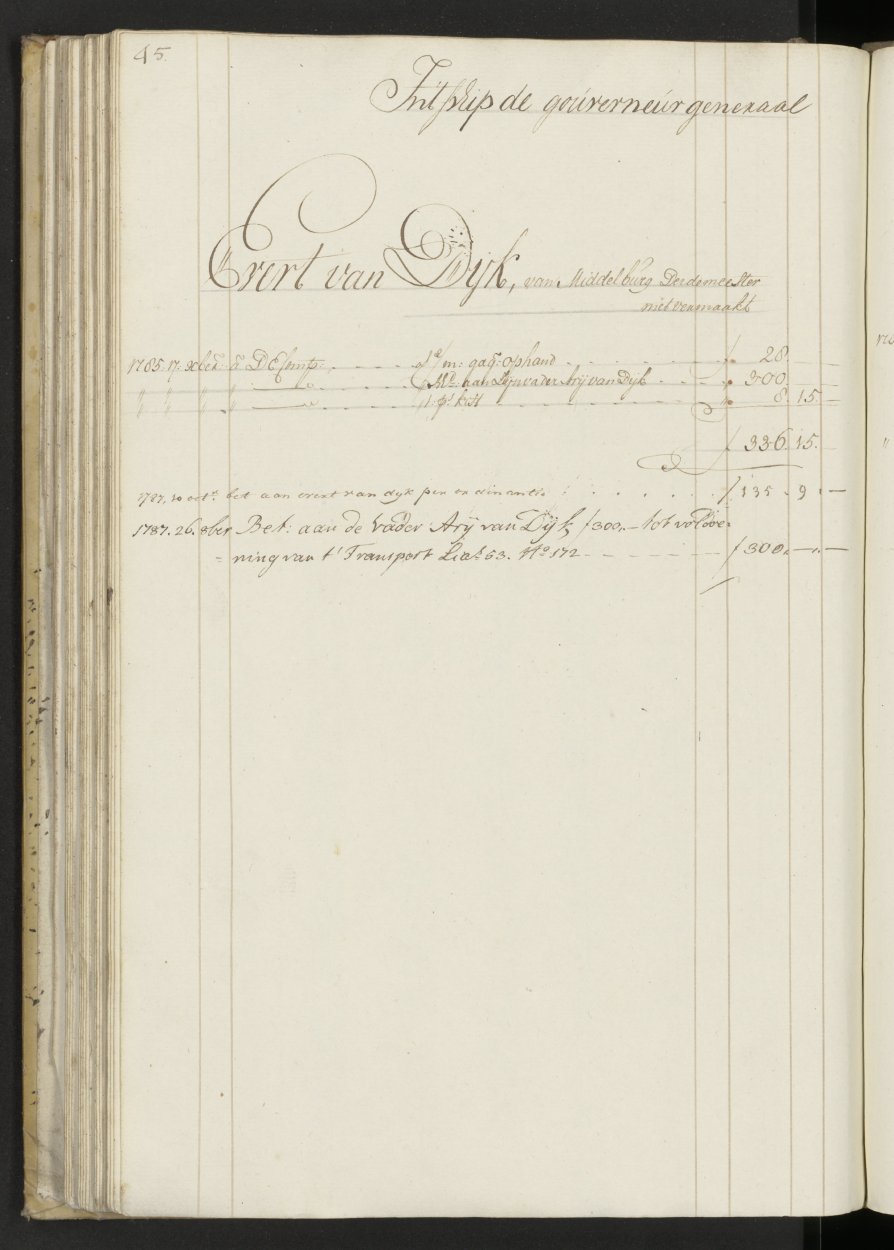 45.
Int schip de gouverneur generaal
Evert van Dijk, van Middelburg Derdemeester
niet vermaakt
1785. 17. xber. à D'E Comp. 2/m: gag: op hand ƒ 28.
" " " " Md. aan zijn vader Arij van Dijk " 300
" " " " 1 ps. kist " 8. 15. —
ƒ 336. 15.
1787, 10 oct. bet aan evert van dyk per ordinantie ƒ 135. 9. —
1787. 26. 8ber Bet: aan de Vader Arij van Dijk ƒ 300,— tot voldoe=
= ning van t' Transport Lia: 63. No. 172 ƒ 300. —. —